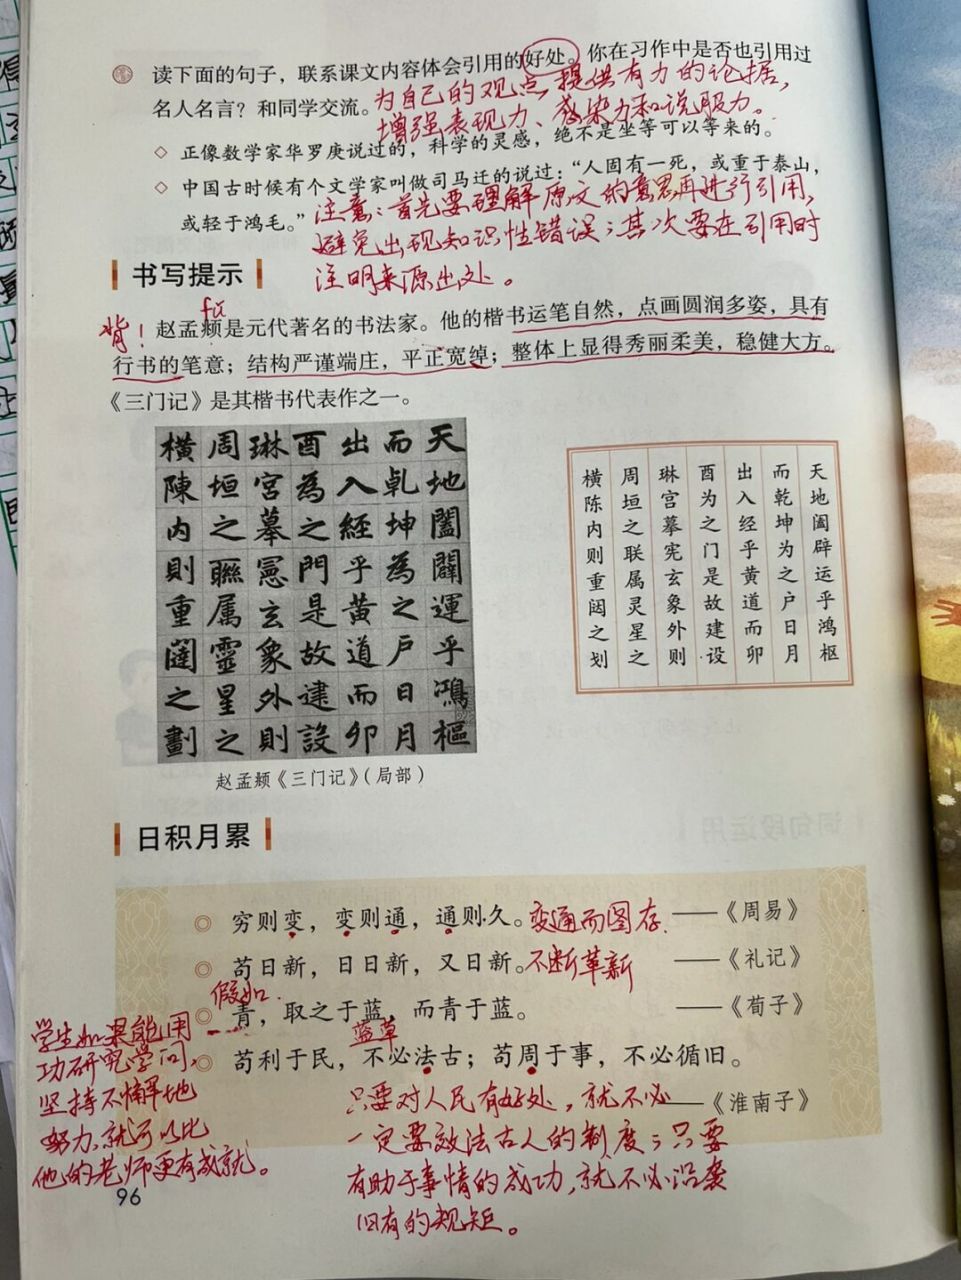 读下面的句子，联系课文内容体会引用的好处。你在习作中是否也引用过
名人名言？和同学交流。
为自己的观点提供有力的论据，
增强表现力、感染力和说服力。
◇ 正像数学家华罗庚说过的，科学的灵感，绝不是坐等可以等来的。
◇ 中国古时候有个文学家叫做司马迁的说过：“人固有一死，或重于泰山，
或轻于鸿毛。”
注意：首先要理解原文的意思再进行引用，
避免出现知识性错误；其次要在引用时
注明来源出处。
书写提示
fǔ
背！
赵孟頫是元代著名的书法家。他的楷书运笔自然，点画圆润多姿，具有
行书的笔意；结构严谨端庄，平正宽绰；整体上显得秀丽柔美，稳健大方。
《三门记》是其楷书代表作之一。
天地闔闢運乎鴻樞
而乾坤為之戶日月
出入經乎黄道而卯
酉為之門是故建設
琳宮摹憲玄象外則
周垣之聯属靈星之
橫陳内則重闥之劃
天地阖辟运乎鸿枢
而乾坤为之户日月
出入经乎黄道而卯
酉为之门是故建设
琳宫摹宪玄象外则
周垣之联属灵星之
横陈内则重闼之划
赵孟頫《三门记》（局部）
日积月累
◎ 穷则变，变则通，通则久。 ——《周易》
变通而图存.
◎ 苟日新，日日新，又日新。 ——《礼记》
不断革新
假如.
◎ 青，取之于蓝，而青于蓝。 ——《荀子》
蓝草
◎ 苟利于民，不必法古；苟周于事，不必循旧。
——《淮南子》
学生如果能用
功研究学问，
坚持不懈地
努力，就可以比
他的老师更有成就。
只要对人民有好处，就不必
一定要效法古人的制度；只要
有助于事情的成功，就不必沿袭
旧有的规矩。
96